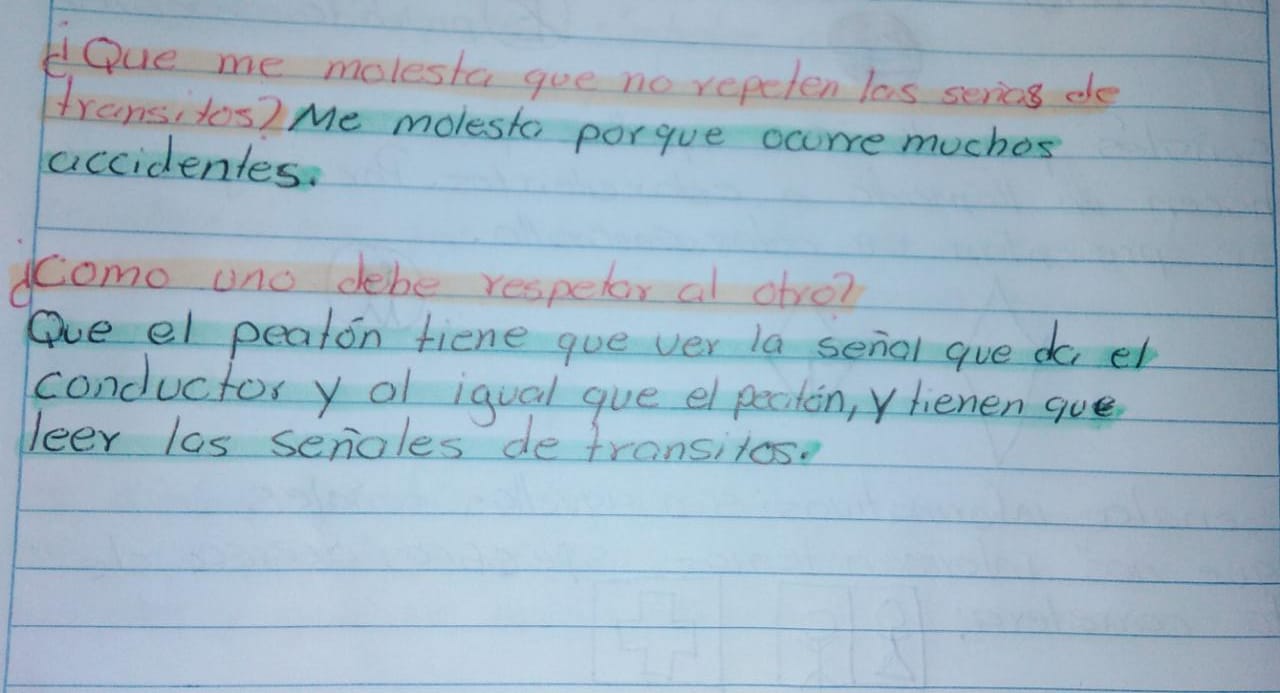 ¿Que me molesta que no repeten las señas de
transitos? Me molesta porque ocurre muchos
accidentes.
¿Como uno debe respetar al otro?
Que el peatón tiene que ver la señal que da el
conductor y al igual que el peatón, y tienen que
leer las señales de transitos.